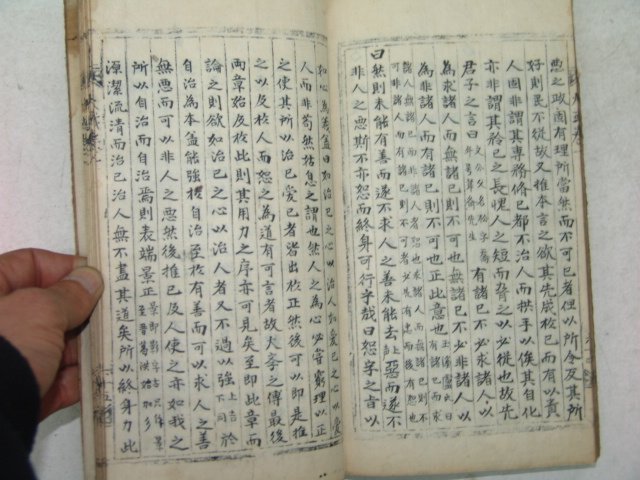 悪之政固有理所當然而不可已者但以所令反其所
好則民不從故又推本言之欲其先成於己而有以責
人固非謂其專務修己都不治人而拱手以俟其自化
亦非謂其矜己之長愧人之短而脅之以必從也故先
君子之言曰文公父名松字喬年号韋齋先生有諸己不必求諸人以
為求諸人而無諸己則不可也無諸己不必非諸人以
為非諸人而有諸己則不可也正此意也玉溪盧氏曰
曰然則未能有善而遂不求人之善未能去上聲惡而遂不
非人之惡斯不亦恕而終身可行乎哉曰恕字之旨以
如心為義盖曰如治己之心以治人如愛己之心以愛
人而非苟然姑息之謂也然人之為心必嘗窮理以正
之使其所以治己愛己者皆出於正然後可以即是推
之以及於人而恕之為道有可言者故大學之傳最後
兩章始及於此則其用力之序亦可見矣至即此章而
論之則欲如治己之心以治人者又不過以強上声下同於
自治為本盖能強於自治至於有善而可以求人之善
無悪而可以非人之悪然後推己及人使之亦如我之
所以自治而自治焉則表端景正景即影字古只作景至晉葛洪始加彡
源潔流清而治己治人無不盡其道矣所以終身力此